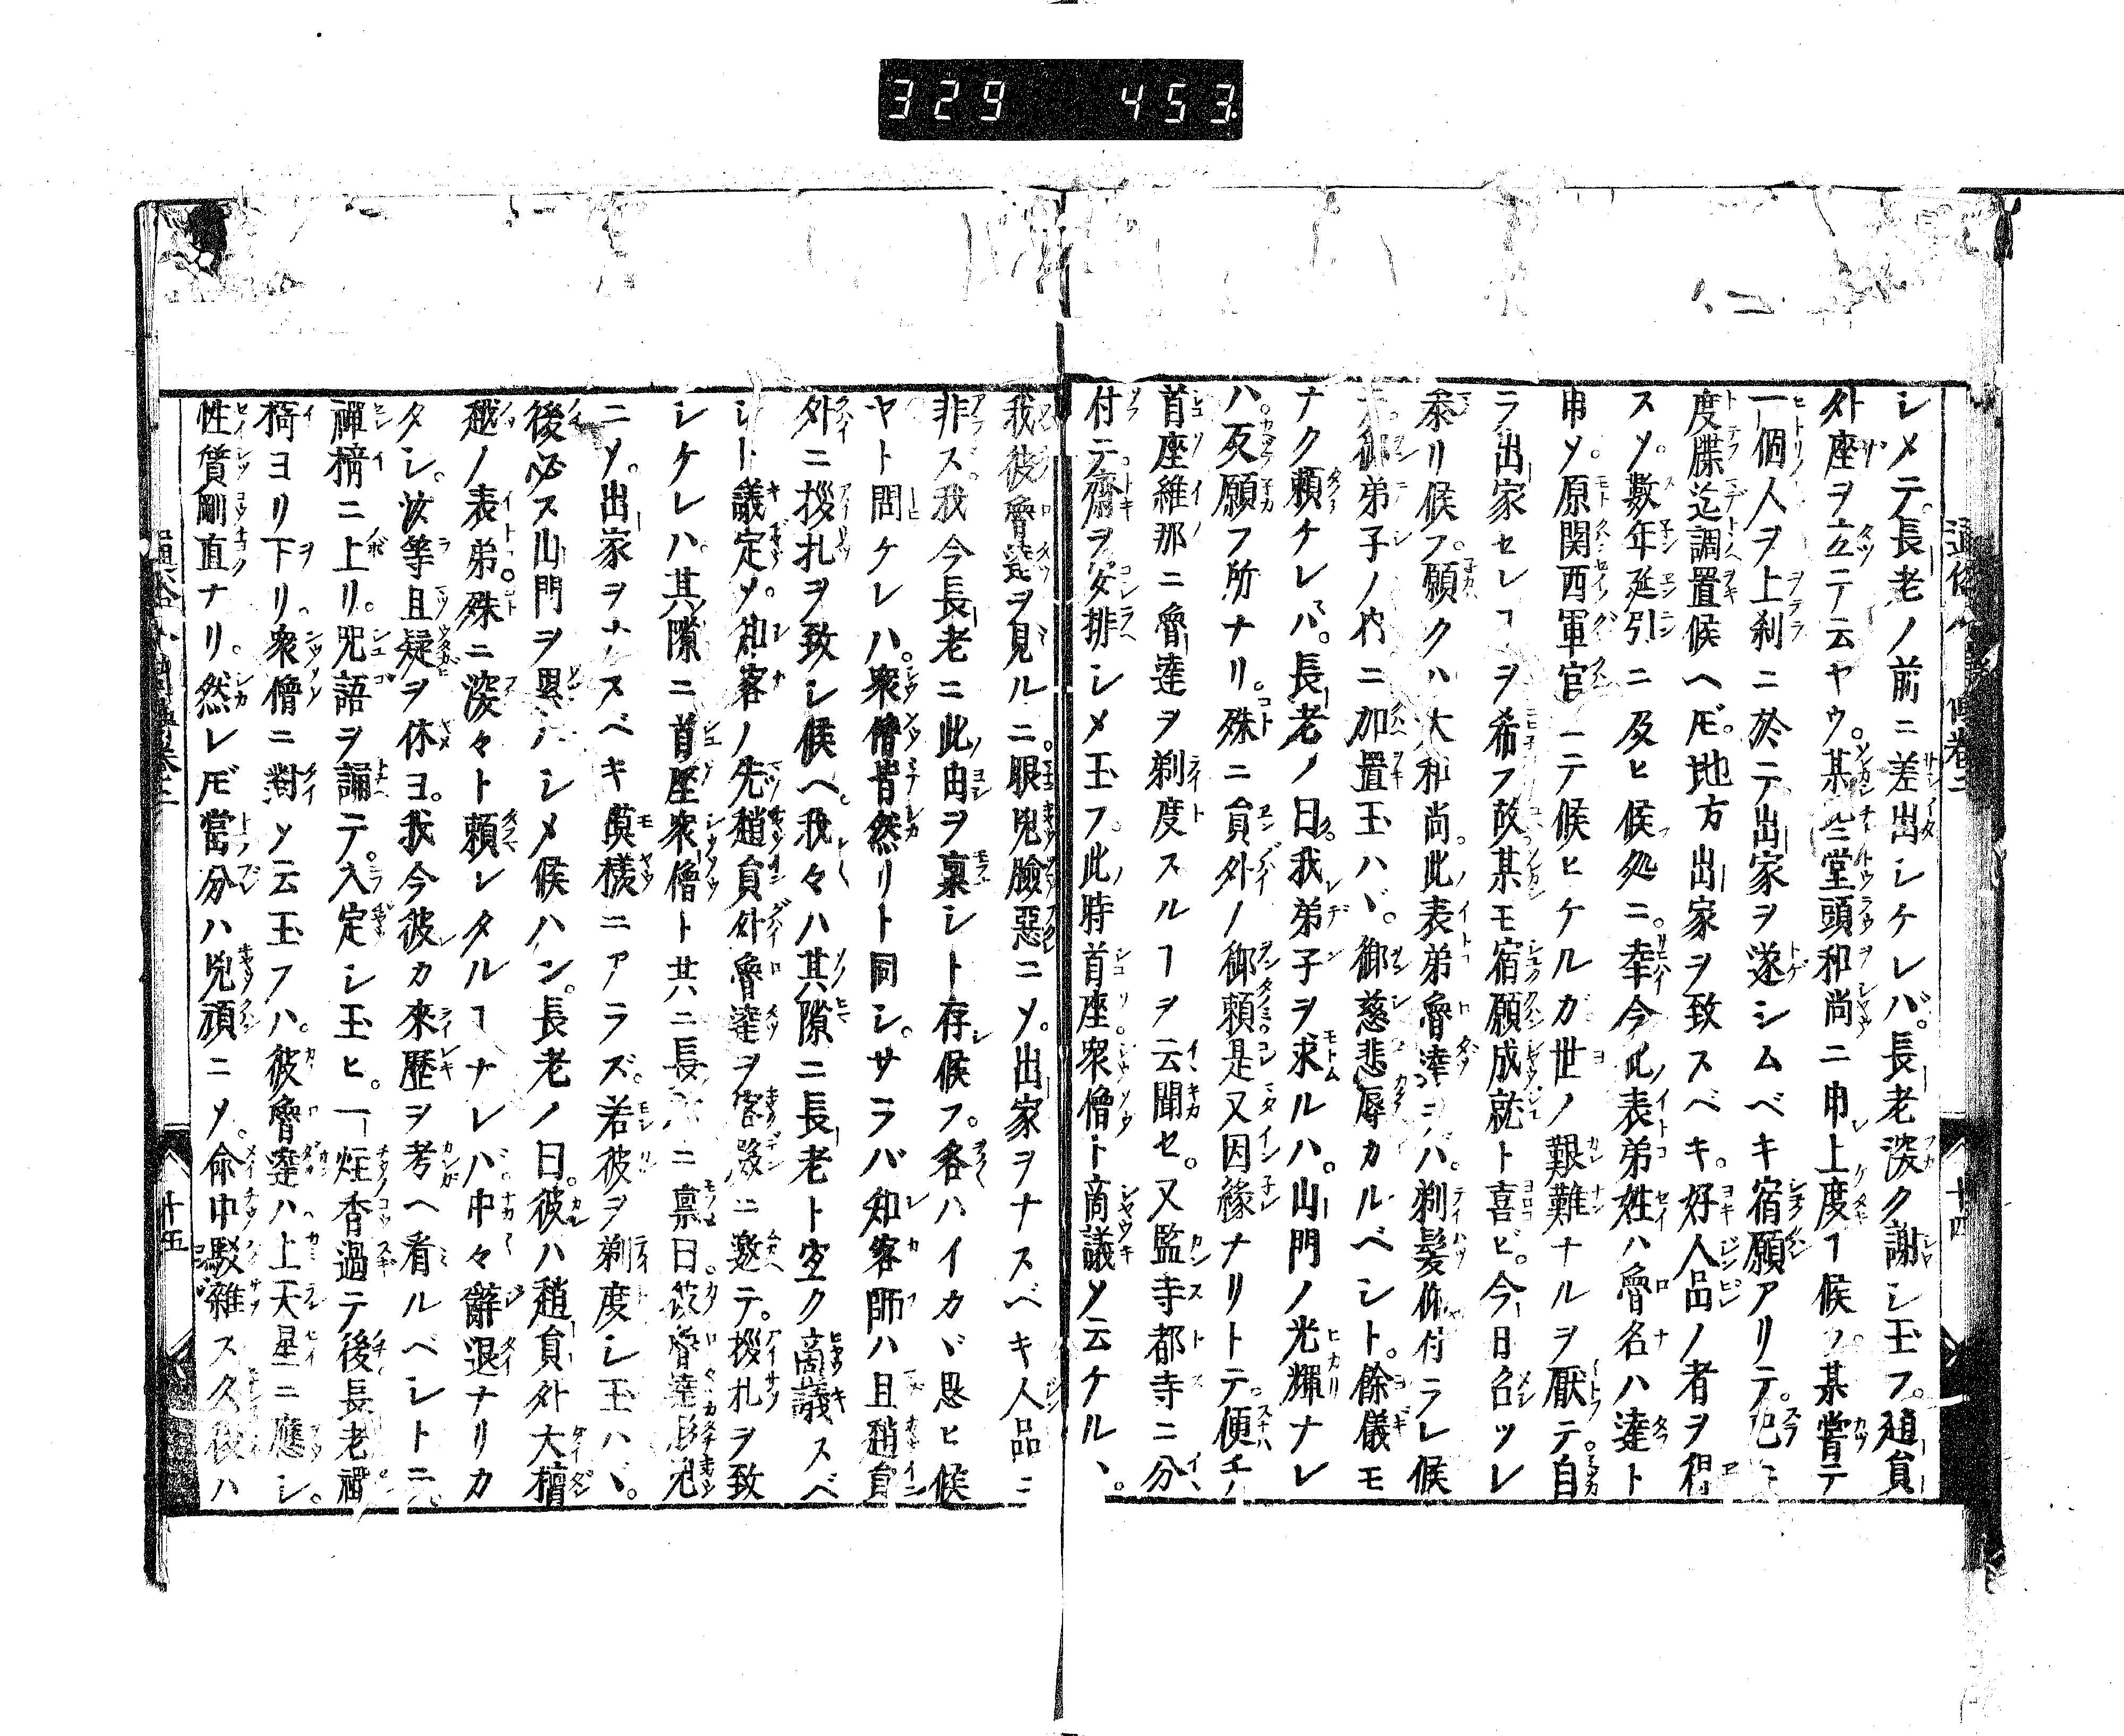 329 453
シメテ。長老ノ前ニ差出シケレバ。長老深ク謝シ玉フ。趙貟
外座ヲ立テ云ヤウ。某堂頭和尚ニ申上度ヿ候フ某嘗テ
一個人ヲ上刹ニ於テ出家ヲ遂シムベキ宿願アリテ。已ニ
度牒迄調置候ヘ𪜈。地方出家ヲ致スベキ。好人品ノ者ヲ得
スメ。數年延引ニ及ヒ候処ニ。幸今此表弟姓ハ魯名ハ達ト
申メ。原関西軍官ニテ候ヒケルガ世ノ艱難ナルヲ厭テ。自
ラ出家セレヿヲ希フ故。某モ宿願成就ト喜ビ。今日召ツレ
泰リ候フ。願クハ大和尚。此表弟魯達ヲバ。剃髪仰付ラレ候
御弟子ノ内ニ加置玉ハヾ。御慈悲辱カルベシト。餘儀モ
ナク頼ケレバ。長老ノ曰。我弟子ヲ求ルハ。山門ノ光輝ナレ
ハ。反願フ所ナリ。殊ニ貟外ノ御頼是又因縁ナリトテ。便チ
首座維那ニ魯達ヲ剃度スルヿヲ云聞セ。又監寺都寺ニ分
付テ。齋ヲ安排シメ玉フ。此時首座衆僧ト商議メ云ケル丶。
我彼魯達ヲ見ルニ。眼兇臉惡ニメ。出家ヲナスベキ人品ニ
非ス。我今長老ニ此由ヲ稟シト存候フ。各ハイカヾ思ヒ候
ヤト問ケレハ。衆僧皆然リト同シ。サラバ知客師ハ且趙貟
外ニ拶札ヲ致シ候ヘ。我々ハ其隙ニ長老ト室ク商議スベ
シト議定メ。知客ノ先趙貟外魯達ヲ客殿ニ邀テ。拶札ヲ致
シケレハ。其隙ニ首座衆僧ト共ニ長老ニ稟曰。彼魯達形兇
ニメ。出家ヲナスベキ模様ニアラズ。若彼ヲ剃度シ玉ハヾ。
後必ス山門ヲ累ハシメ候ハン。長老ノ曰。彼ハ趙貟外大檀
越ノ表弟。殊ニ深々ト頼レタルヿナレバ。中々辭退ナリカ
タシ。汝等且疑ヲ休ヨ。我今彼カ來歷ヲ考ヘ看ルベシトニ
禪椅ニ上リ。咒語ヲ誦テ。入定シ玉ヒ。一炷香過テ後長老禪
椅ヨリ下リ。衆僧ニ對メ云玉フハ。彼魯達ハ上天星ニ應シ。
性質剛直ナリ。然レ𪜈當分ハ兇頑ニメ。命中駁雜ス久後ハ
十四
十五